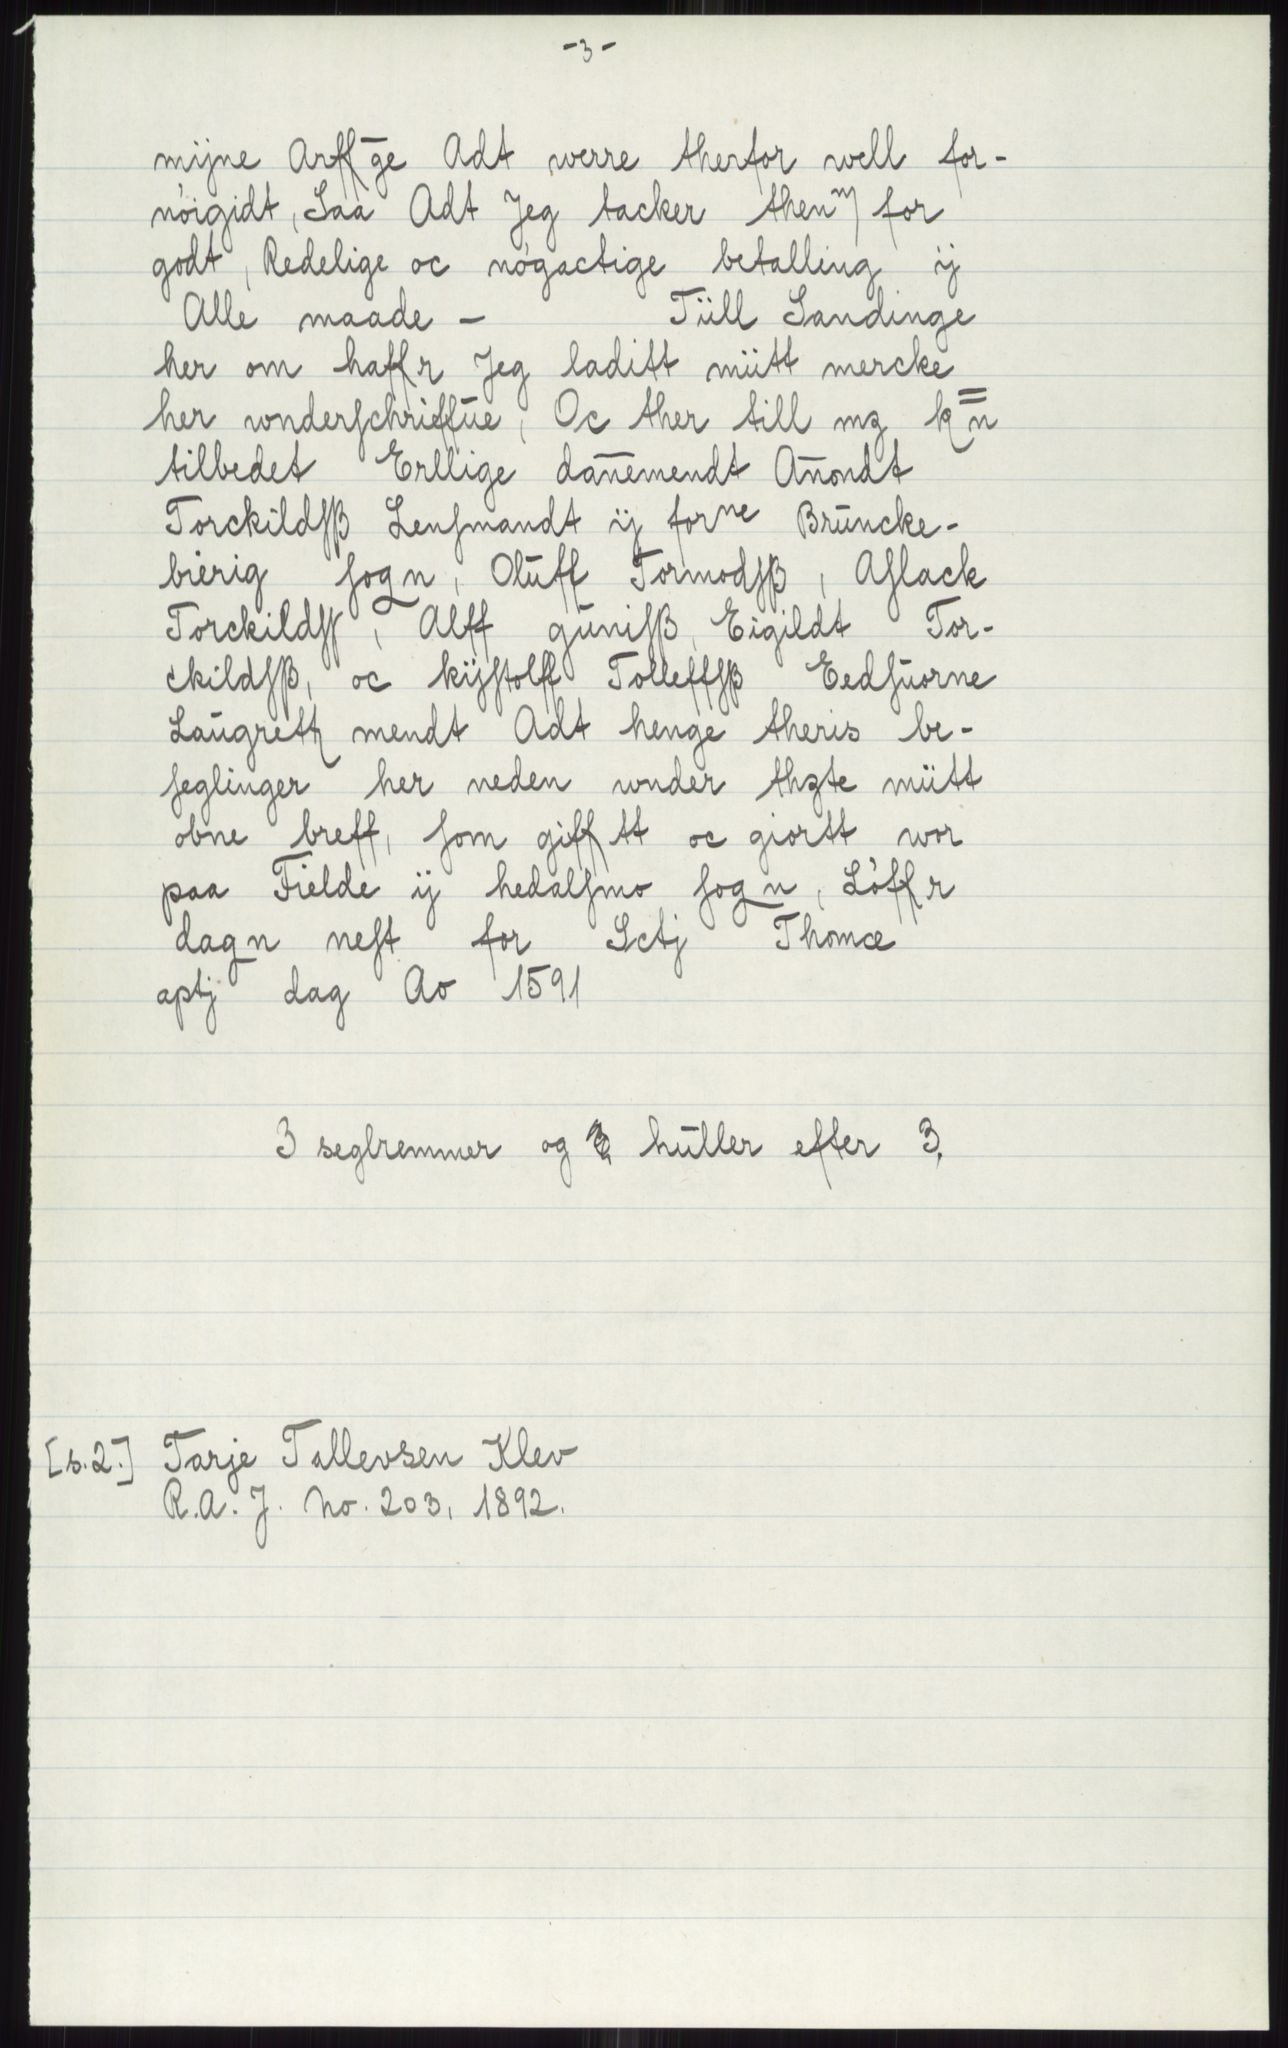 -3-
mijne Arff̄ge Adt werre therfor well for-
nøigidt, Saa Adt Jeg tacker then^m for
godt, Redelige oc nøgactige betalling ÿ
Alle maade - Tüll Sandinge
her om haffr Jeg laditt mütt mercke
her wnderſchriffūe, Oc ther till mz k̿n
tilbedet Erllige dan̄emendt An̄ondt
Torckildſß Lenſmandt ÿ for^ne Brūncke-
bierig ſogn, Olūff Tormodſß, Aſlack
Torckildſß, Alff gūniſß, Eigildt Tor-
ckildſß, oc kÿſtolff Tolleffſß Eedſuorne
Laūgrett mendt Adt henge theris be-
ſeglinger her neden wnder thzte mütt
obne breff, ſom gifftt oc giortt wor
paa Fielde ÿ hedalſmo ſogn, Løffr
dagn neſt for Sctj Thomæ
aptj dag Ao 1591
3 seglremmer og hūller efter 3.
[s.2.] Tarje Tallevsen Klev
R.A. J. No. 203, 1892.